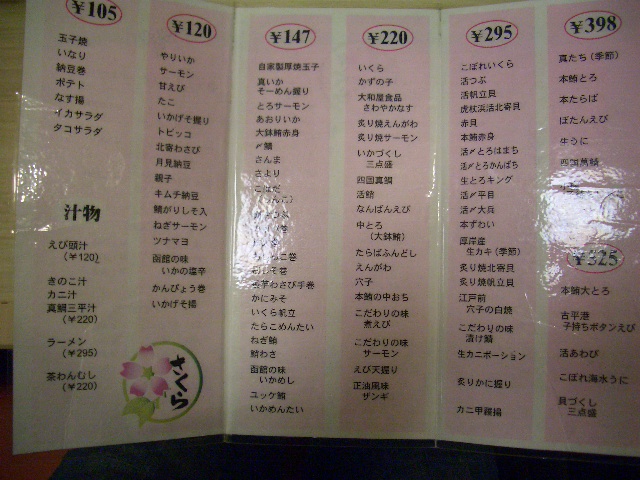 ¥105
玉子焼
いなり
納豆巻
ポテト
なす揚
イカサラダ
タコサラダ
汁物
えび頭汁
（¥120）
きのこ汁
カニ汁
真鯛三平汁
（¥220）
ラーメン
（¥295）
茶わんむし
（¥220）
¥120
やりいか
サーモン
甘えび
たこ
いかげそ握り
トビッコ
北寄わさび
月見納豆
親子
キムチ納豆
鯖がりしそ入
ねぎサーモン
ツナマヨ
函館の味
いかの塩辛
かんぴょう巻
いかげそ揚
さくら
¥147
自家製厚焼玉子
真いか
そーめん握り
とろサーモン
あおりいか
大鉢鮪赤身
〆鯖
さんま
さより
こはだ
かにみそ
いくら軍立
たらこめんたい
ねぎ鮪
鮪わさ
函館の味
いかめし
ユッケ鮪
いかめんたい
¥220
いくら
かずの子
大和屋食品
さわやかなす
炙り焼えんがわ
炙り焼サーモン
いかづくし
三点盛
四国真鯛
活鯖
なんばんえび
中とろ
（大鉢鮪）
たらばふんどし
えんがわ
穴子
本鮪の中おち
こだわりの味
煮えび
こだわりの味
サーモン
えび天握り
正油風味
ザンギ
¥295
こぼれいくら
活つぶ
活帆立貝
虎杖浜活北寄貝
赤貝
本鮪赤身
活〆とろはまち
活〆とろかんぱち
生とろキング
活〆平目
活〆大兵
本ずわい
厚岸産
生カキ（季節）
炙り焼北寄貝
炙り焼帆立貝
江戸前
穴子の白焼
こだわりの味
漬け鯖
生カニポーション
炙りかに握り
カニ甲羅揚
¥398
真たち（季節）
本鮪とろ
本たらば
ぼたんえび
生うに
四国萬鯛
¥325
本鮪大とろ
古平港
子持ちボタンえび
活あわび
こぼれ海水うに
貝づくし
三点盛